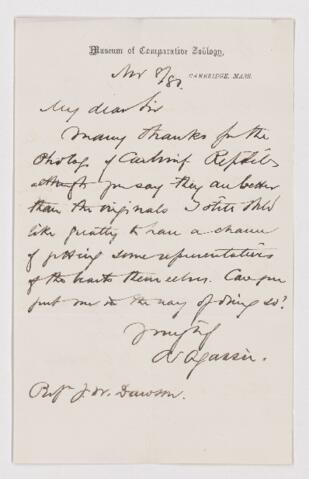 Museum of Comparative Zoölogy,
CAMBRIDGE, MASS.
Nov 8/80.
My dear Sir
Many thanks for the
Photogs of Carbonif Reptiles
although you say they are better
than the originals I still shld
like greatly to have a chance
of getting some representatives
of the beasts themselves. Can you
put me in the way of doing so?
Yours truly
A Agassiz.
Prof J. W. Dawson.